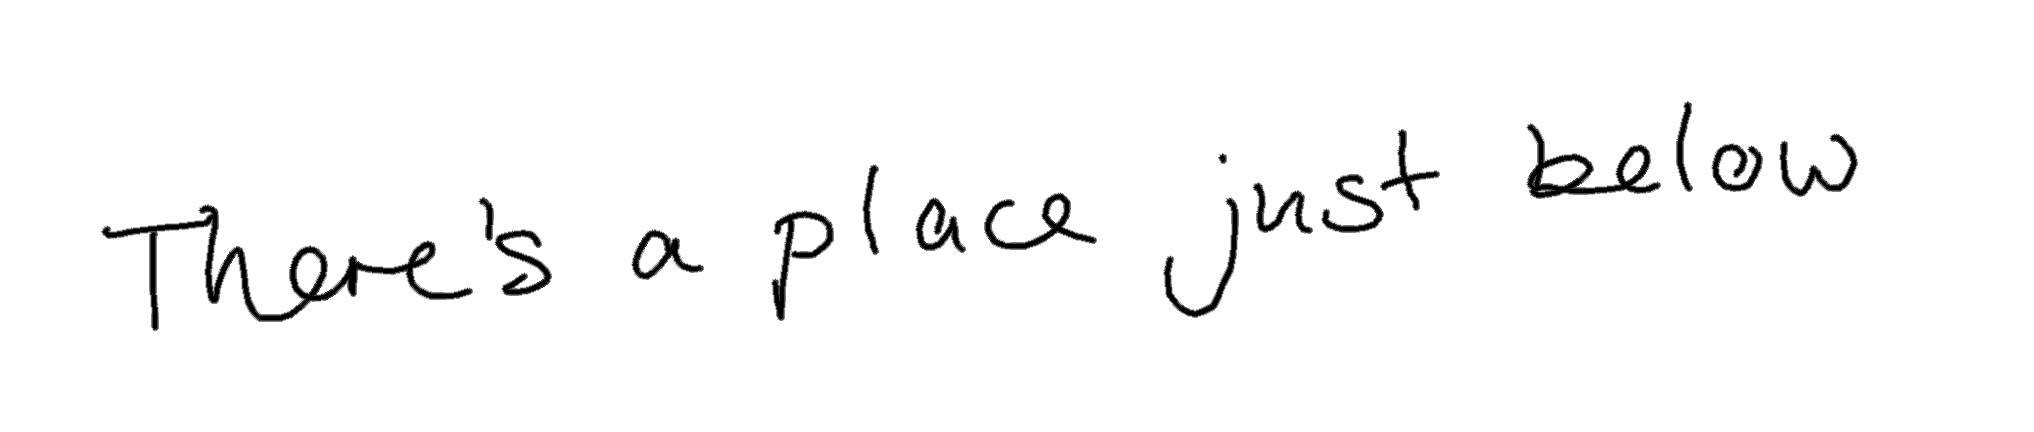 There's a place just below